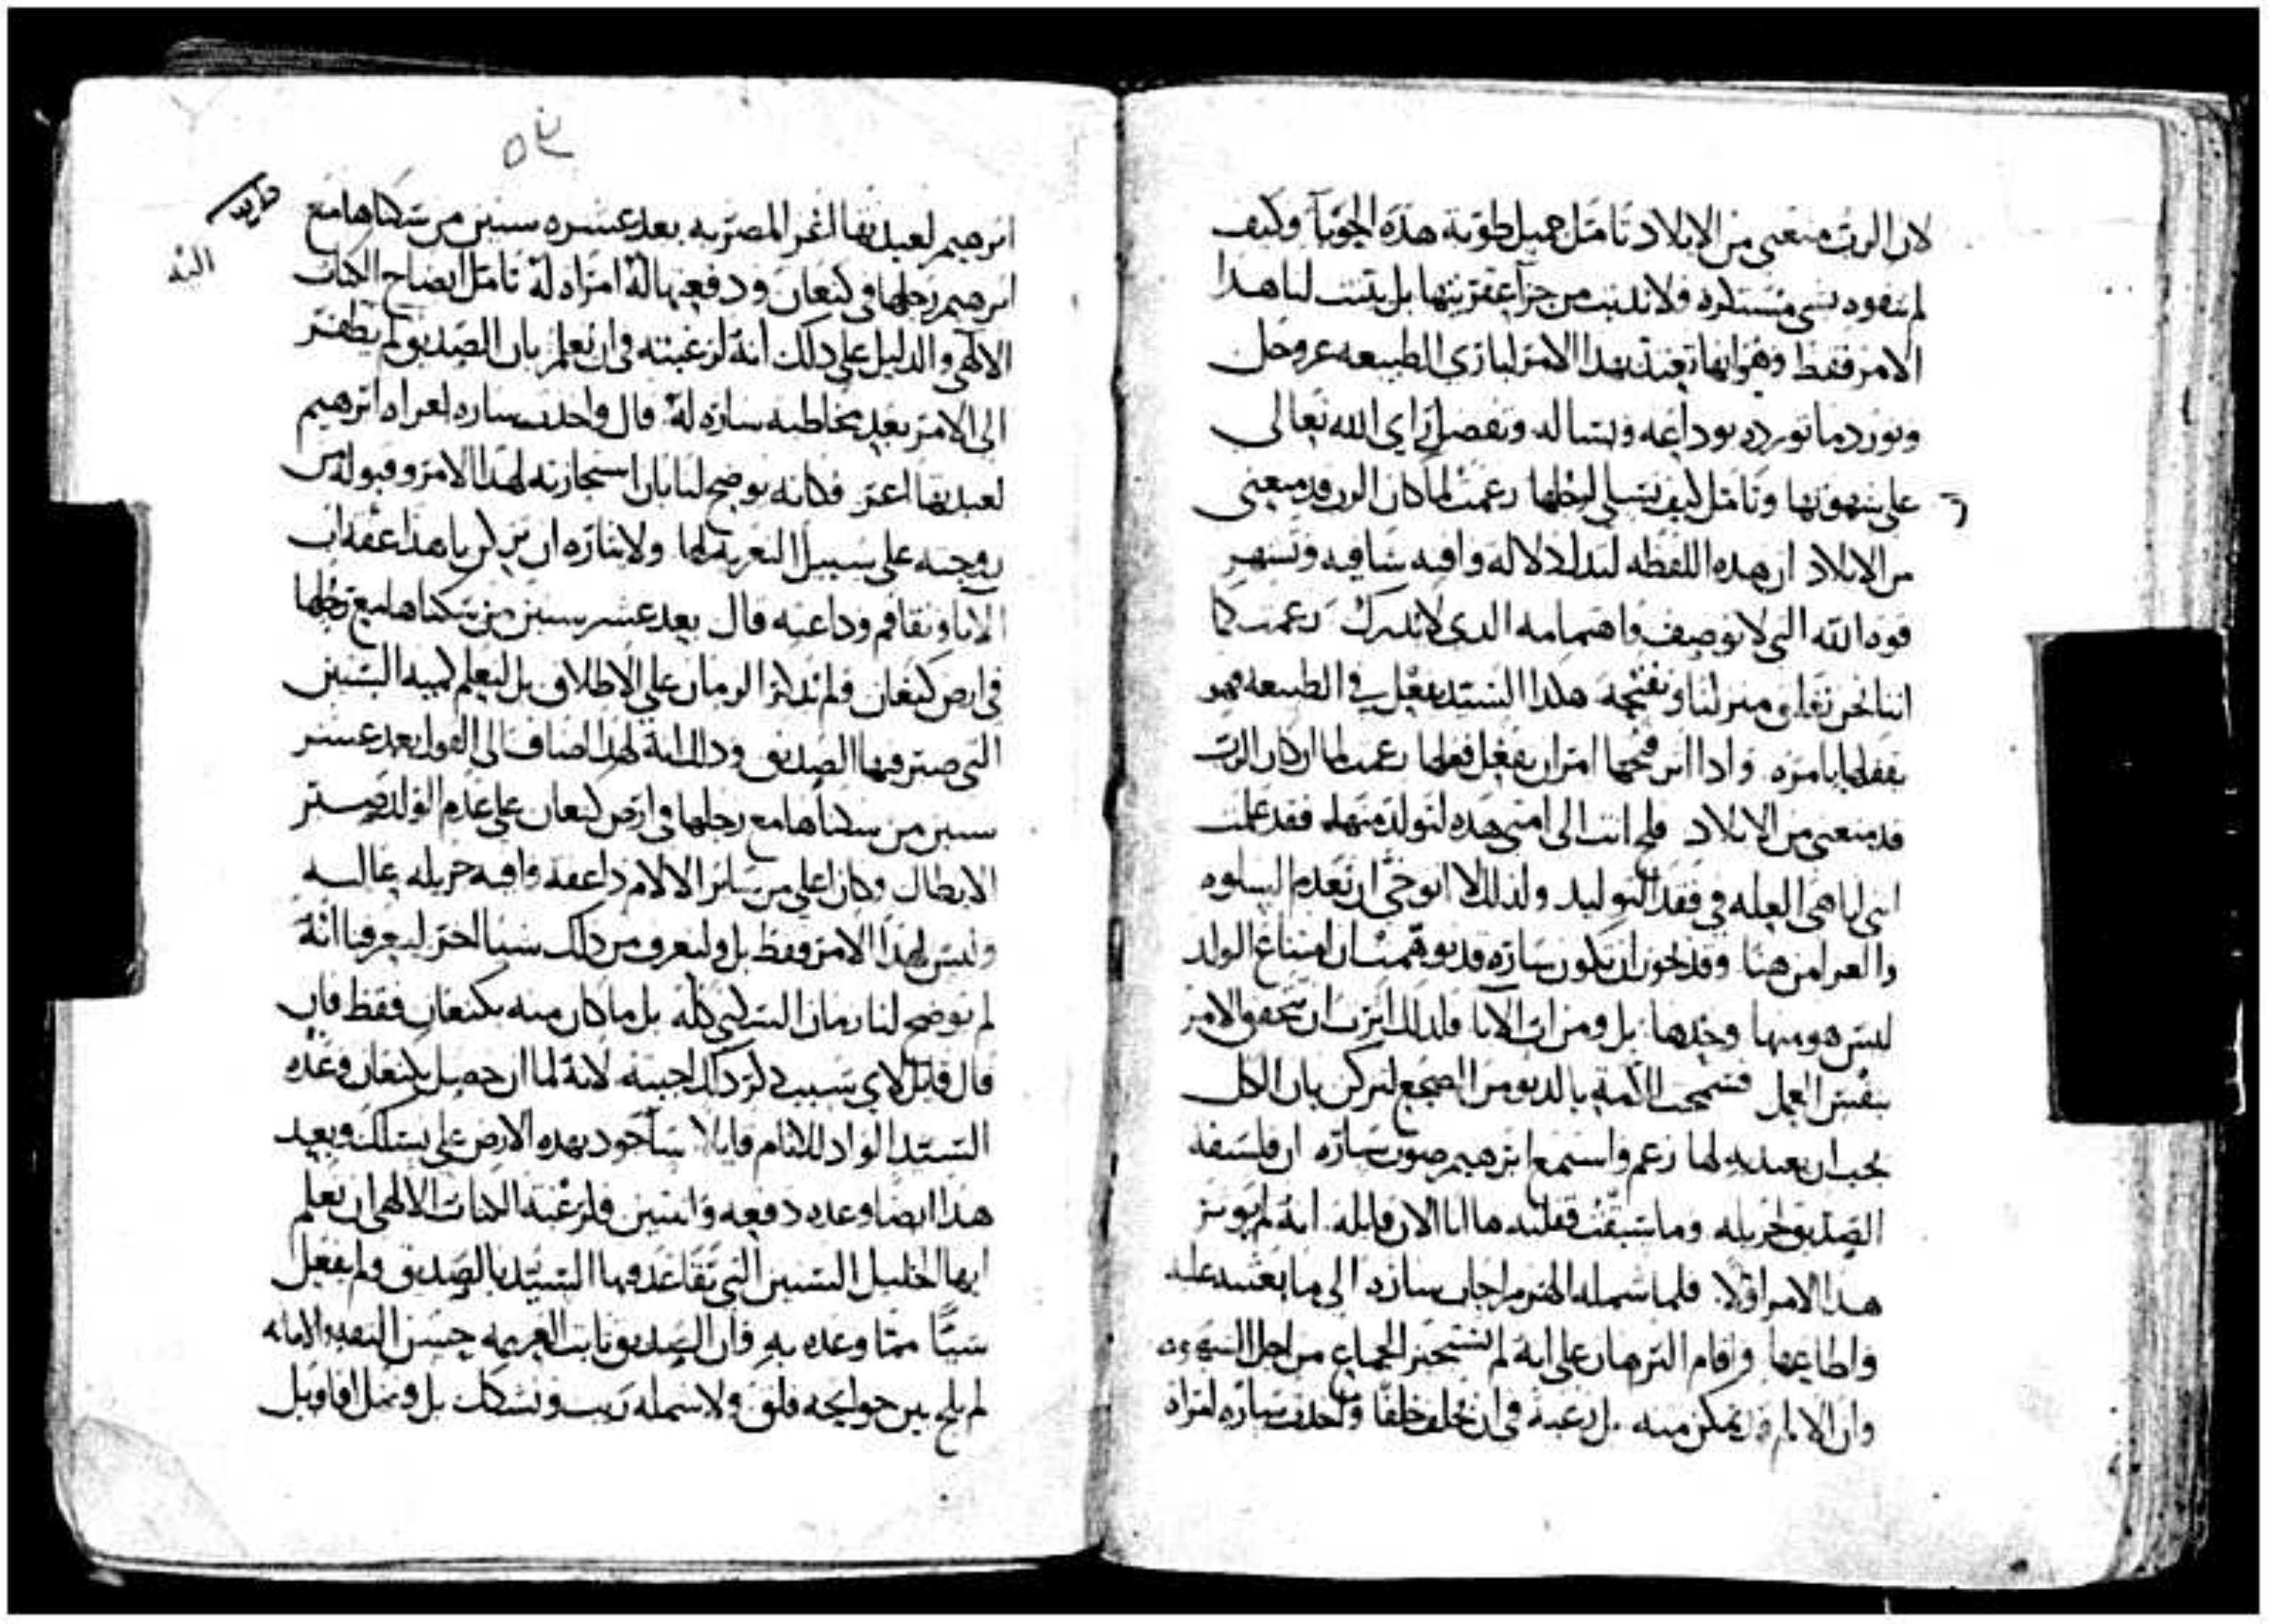 لان الرب منعني من الايلاد تامل جميل طوية هذه الجوبا وكيف
لم تتفوه بشي مستكره ولا تدبت من جرا عقريتها بل يثبت لنا هذا
الامر فقط وهو انها تعتد بهذا الامر لباري الطبيعه عز وجل
وتورد ما تورده بوداعه وتساله وتفصل راي الله تعالى
على شهوتها وتامل كيف تسلي لبعلها زعمت لما كان الرب قد منعني
من الايلاد ان هذه اللفظه لتدل دلاله وافيه شافيه وتشهر
قوه الله التي لا توصف واهتمامه الذي لا يدرك زعمت كما
اننا نحن نغلق منزلنا ونفتحه هكذا السيد يفعل في الطبيعه فهو
يقفلها بامره واذا اثر فتحها امر ان يفعل فعلها زعمت لما ان كان الرب
قد منعني من الايلاد فلج انت الى امتي هذه لتولد منها فقد علمت
انني انا هي العله في فقد التوليد ولذلك لا اتوخى ان تعدم السلوه
والعزا من هنا وقد يجوز ان تكون ساره قد توهمت ان امتناع الولد
ليس هو منها وحدها بل ومن اب الابا فلذلك اثرت ان تتحقق الامر
بنفس العمل فسمحت للامه بالدنو من المضجع لتركن بان الكل
يجب ان يعتد به لها زعم واستمع ابرهيم صوت ساره ان فلسفة
الصديق لجزيله وما سبقت فقلته ها انا الان قايله انه لم يوثر
هذا الامر اولا فلما شمله الهرم اجاب ساره الى ما يعتمد عليه
واطاعها واقام البرهان على انه لم يستجز الجماع من اجل الشهوه
وان الالم قد تمكن منه بل رغبة في ان يخلف خلفا واخذت ساره امراه
٥٤
ابرهيم لعبدتها اغر المصريه بعد عشره سنين من سكناها مع
ابرهيم رجلها في كنعان ودفعتها له امراه له تامل ايضاح الكتاب
الالهي والدليل على ذلك انه لرغبته في ان نعلم بان الصديق لم يطفر
الى الامر بعد مخاطبة ساره له قال واخذت ساره امراه ابرهيم
لعبدتها اغر فكانه يوضح لنا بان استجازته لهذا الامر وقبوله من
زوجته على سبيل التعزية لها ولايثاره ان تركن يا هذا عفة اب
الابا وتفاقم وداعته قال بعد عشر سنين من سكناها مع رجلها
في ارض كنعان ولم تذكر الزمان على الاطلاق بل لتعلم كمية السنين
التي صبر فيها الصديق وذلك انه لهذا اضاف الى القول بعد عشر
سنين من سكناها مع رجلها في ارض كنعان على عدم الولد صبر
الابطال وكان اعلى من ساير الالام ذا عفة وافيه جزيله عاليه
وليس لهذا الامر فقط بل ولنعرف من ذلك شيا اخر ليعرفنا انه
لم يوضح لنا زمان السكنى كله بل ما كان منه بكنعان فقط فان
قال قايل لاي سبب ذكر ذلك اجبته لانه لما ان حصل بكنعان وعده
السيد الواد للانام قايلا ساجود بهذه الارض على نسلك وبعيد
هذا ايضا وعده دفعه واثنين فلرغبة الكتاب الالهي ان تعلم
ايها الخليل السنين التي تقاعد فيها السيد بالصديق ولم يفعل
شيا مما وعده به فان الصديق ثابت العزيمه حسن الثقه والامانه
لم يلج بين جوانحه قلق ولا شمله ريب وتشكك بل وثمل اقاويل
البته